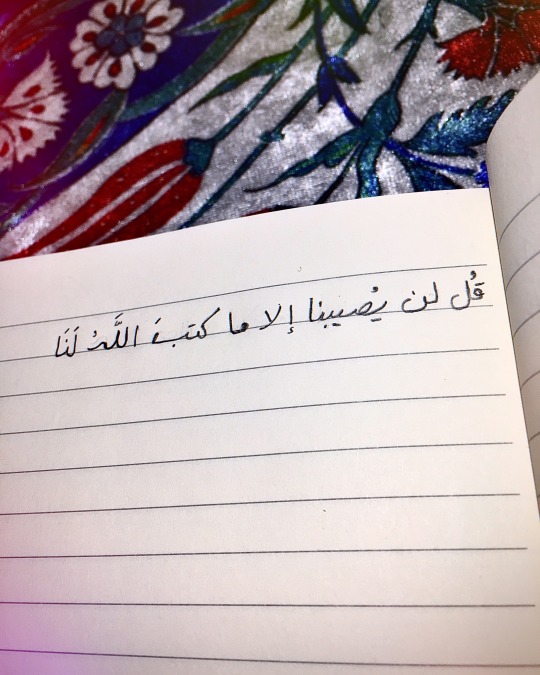 قُل لن يُصيبنا إلا ما كتبَ اللَّهُ لَنَا